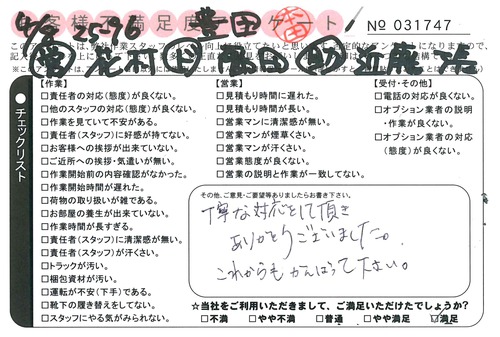 4/8 25-96 豊田
お客様不満足度アンケート!
№ 031747
チェックリスト
【作業】
□責任者の対応(態度)が良くない。
□他のスタッフの対応(態度)が良くない。
□作業を見ていて不安がある。
□責任者(スタッフ)に好感が持てない。
□お客様への挨拶が出来ていない。
□ご近所への挨拶・気遣いが無い。
□作業開始前の内容確認がなかった。
□作業開始時間が遅れた。
□荷物の取り扱いが雑である。
□お部屋の養生が出来ていない。
□作業時間が長すぎる。
□責任者(スタッフ)に清潔感が無い。
□責任者(スタッフ)が汗くさい。
□トラックが汚い。
□梱包資材が汚い。
□運転が不安(下手)である。
□靴下の履き替えをしてない。
□スタッフにやる気がみられない。
【営業】
□見積もり時間に遅れた。
□見積もり時間が長い。
□営業マンに清潔感が無い。
□営業マンが煙草くさい。
□営業マンが汗くさい。
□営業態度が良くない。
□営業の説明と作業が一致してない。
【受付・その他】
□電話の対応が良くない。
□オプション業者の説明
・作業が良くない。
□オプション業者の対応
(態度)が良くない。
その他、ご意見・ご要望等ありましたらお書き下さい。
丁寧な対応をして頂き
ありがとうございました。
これからもがんばって下さい。
☆当社をご利用いただきまして、ご満足いただけたでしょうか?
□不満 □やや不満 □普通 □やや満足 □満足